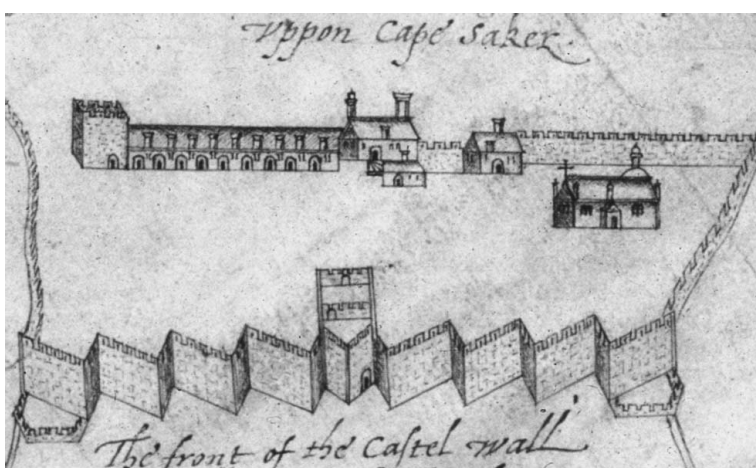 Vppon Cape Saker
The front of the Castel wall